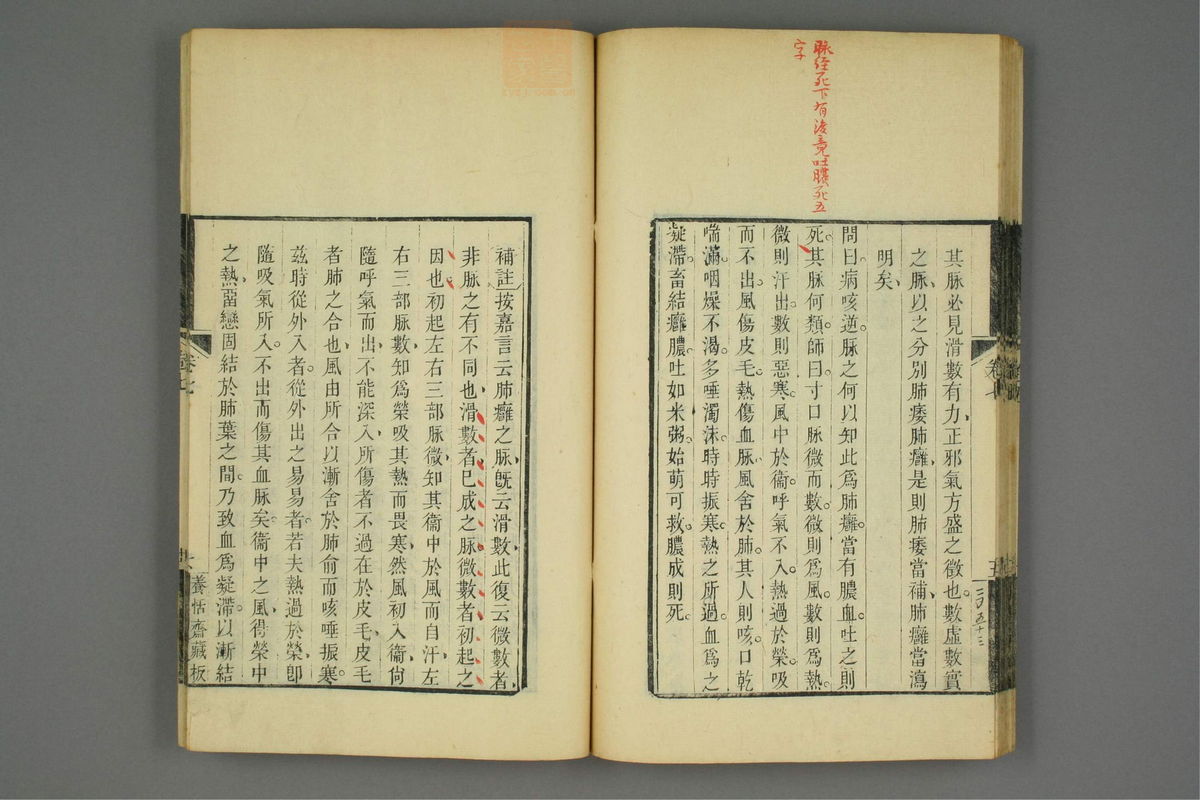 脉经死下有後竟吐膿死五
字
其脉必見滑數有力正邪氣方盛之徵也數虛數實
之脉以之分別肺痿肺癰是則肺痿當補肺癰當瀉
明矣
問曰病咳逆脉之何以知此爲肺癰當有膿血吐之則
死其脉何類師曰寸口脉微而數微則爲風數則爲熱
微則汗出數則惡寒風中於衞呼氣不入熱過於榮吸
而不出風傷皮毛熱傷血脉風舍於肺其人則咳口乾
喘滿咽燥不渴多唾濁沫時時振寒熱之所過血爲之
凝滯畜結癰膿吐如米粥始萌可救膿成則死
補註按嘉言云肺癰之脉既云滑數此復云微數者
非脉之有不同也滑數者已成之脉微數者初起之
因也初起左右三部脉微知其衞中於風而自汗左
右三部脉數知爲榮吸其熱而畏寒然風初入衞尙
隨呼氣而出不能深入所傷者不過在於皮毛皮毛
者肺之合也風由所合以漸舍於肺俞而咳唾振寒
兹時從外入者從外出之易易者若夫熱過於榮卽
隨吸氣所入不出而傷其血脉矣衞中之風得榮中
之熱畱戀固結於肺葉之間乃致血爲凝滯以漸結
卷七
養恬齋藏板